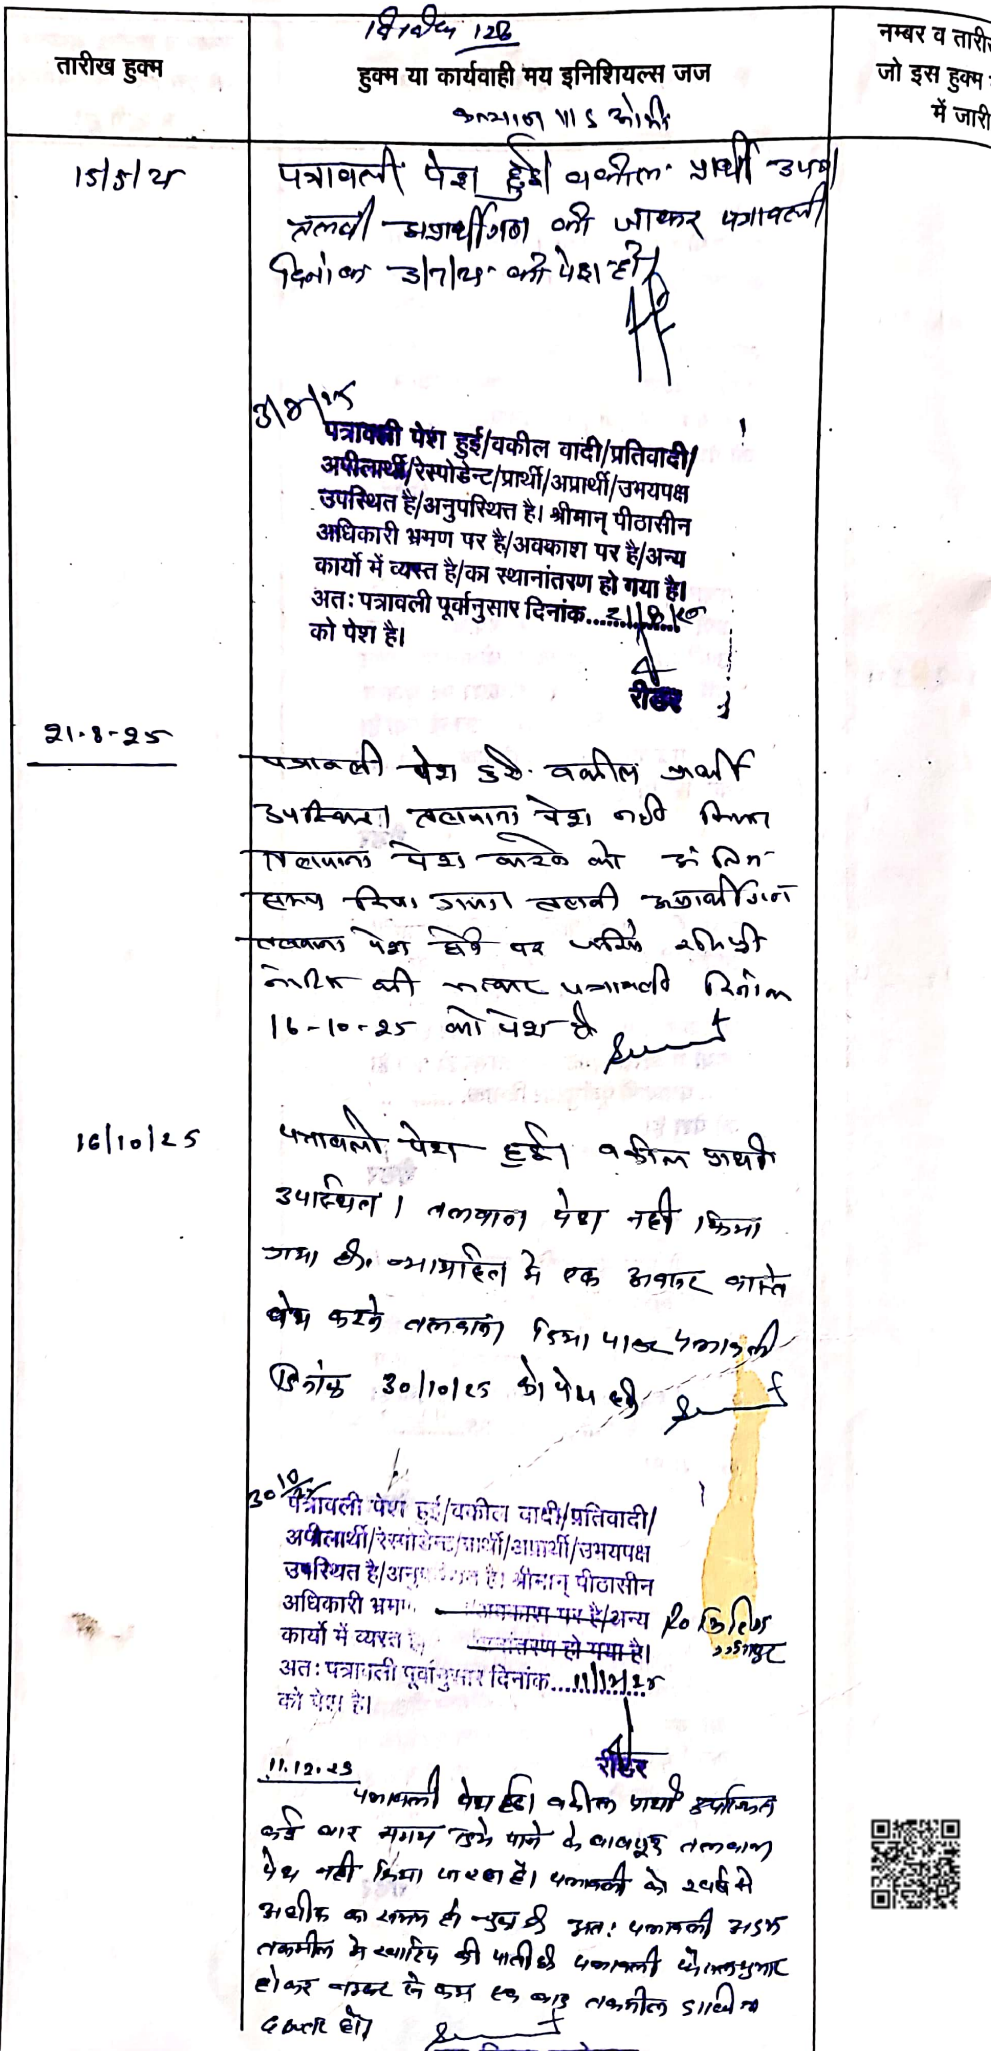 विविध 126
तारीख हुक्म
हुक्म या कार्यवाही मय इनिशियल्स जज
नम्बर व तारी
जो इस हुक्म
में जारी
15/5/25
पत्रावली पेश हुई। वकील प्रार्थी उप०।
तलवी अप्रार्थीगण की जाकर पत्रावली
दिनांक 3/7/25 को पेश हो।
पत्रावली पेश हुई/वकील वादी/प्रतिवादी/
अपीलार्थी/रेस्पोडेन्ट/प्रार्थी/अप्रार्थी/उभयपक्ष
उपस्थित है/अनुपस्थित है। श्रीमान् पीठासीन
अधिकारी भ्रमण पर है/अवकाश पर है/अन्य
कार्यो में व्यस्त है/का स्थानांतरण हो गया है।
अतः पत्रावली पूर्वानुसार दिनांक....21/8/25
को पेश है।
रीडर
21-8-25
पत्रावली पेश हुई. वकील प्रार्थी
उपस्थित। तलवाना पेश नही किया
तलवाना पेश करने को
समय दिया गया। तलवी अप्रार्थीगण
तलवाना पेश होने पर जरिये
नोटिस की जाकर पत्रावली दिनांक
16-10-25 को पेश हो
16/10/25
पत्रावली पेश हुई। वकील प्रार्थी
उपस्थित। तलवाना पेश नही किया
गया है. न्यायहित मे एक अवसर वास्ते
पेश करने तलवाना दिया जाकर पत्रावली
दिनांक 30/10/25 को पेश हो
30/10/25
पत्रावली पेश हुई/वकील वादी/प्रतिवादी/
अपीलार्थी/रेस्पोडेन्ट/प्रार्थी/अप्रार्थी/उभयपक्ष
उपस्थित है/अनुपस्थित है। श्रीमान् पीठासीन
अधिकारी भ्रम अवकाश पर है/अन्य
कार्यो में व्यस्त है स्थानांतरण हो गया है।
अतः पत्रावली पूर्वानुसार दिनांक....11/12/25
को पेश है।
रीडर
11.12.25
पत्रावली पेश हुई। वकील प्रार्थी उपस्थित
कई बार समय दिये जाने के बावजूद तलवाना
पेश नही किया जा रहा है। पत्रावली को 2 वर्ष से
अधिक का समय हो चुका है अतः पत्रावली अदम
तकमील मे खारिज की जाती है पत्रावली फैसलशुमार
होकर नम्बर से कम हो बाद तकमील दाखिल
दफ्तर हो।